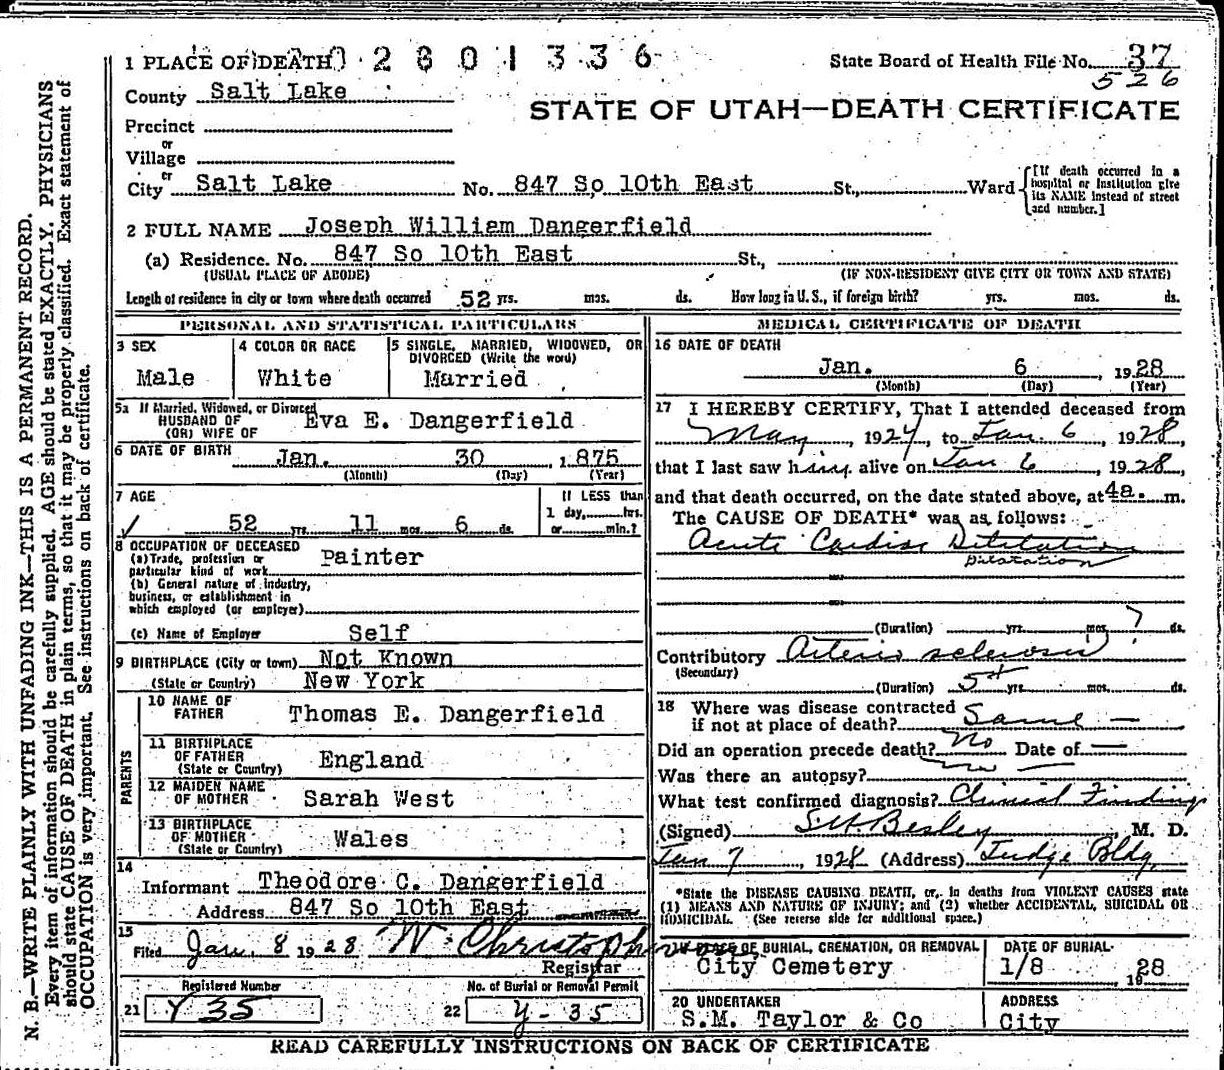 1 PLACE OF DEATH 2 6 0 1 3 3 6 State Board of Health File No. 37
526
County Salt Lake
STATE OF UTAH—DEATH CERTIFICATE
Precinct
or
Village
or
City Salt Lake No. 847 So 10th East St., Ward
[If death occurred in a
hospital or Institution give
its NAME instead of street
and number.]
2 FULL NAME Joseph William Dangerfield
(a) Residence. No. 847 So 10th East St.,
(USUAL PLACE OF ABODE) (IF NON-RESIDENT GIVE CITY OR TOWN AND STATE)
Length of residence in city or town where death occurred 52 yrs. mos. ds. How long in U. S., if foreign birth? yrs. mos. ds.
PERSONAL AND STATISTICAL PARTICULARS
3 SEX
Male
4 COLOR OR RACE
White
5 SINGLE, MARRIED, WIDOWED, OR
DIVORCED (Write the word)
Married
5a If Married, Widowed, or Divorced
HUSBAND OF
(OR) WIFE OF
Eva E. Dangerfield
6 DATE OF BIRTH Jan. 30, 1875
(Month) (Day) (Year)
7 AGE
52 yrs. 11 mos. 6 ds.
If LESS than
1 day, hrs.
or min.?
8 OCCUPATION OF DECEASED
(a) Trade, profession or
particular kind of work
Painter
(b) General nature of industry,
business, or establishment in
which employed (or employer)
(c) Name of Employer Self
9 BIRTHPLACE (City or town) Not Known
(State or Country) New York
PARENTS
10 NAME OF
FATHER
Thomas E. Dangerfield
11 BIRTHPLACE
OF FATHER
(State or Country)
England
12 MAIDEN NAME
OF MOTHER
Sarah West
13 BIRTHPLACE
OF MOTHER
(State or Country)
Wales
14
Informant Theodore C. Dangerfield
Address 847 So 10th East
15
Filed Jan. 8 1928 W. Christopherson
Registrar
Registered Number
21 Y 35
No. of Burial or Removal Permit
22 Y-35
MEDICAL CERTIFICATE OF DEATH
16 DATE OF DEATH
Jan. 6, 1928
(Month) (Day) (Year)
17 I HEREBY CERTIFY, That I attended deceased from
May, 1924, to Jan. 6, 1928,
that I last saw him alive on Jan 6, 1928,
and that death occurred, on the date stated above, at 4a. m.
The CAUSE OF DEATH* was as follows:
Acute Cardiac Dilitation
Dilatation
(Duration) yrs. mos. ? ds.
Contributory Arterio sclerosis
(Secondary)
(Duration) 5+ yrs. mos. ds.
18 Where was disease contracted
if not at place of death? Same —
Did an operation precede death? No Date of —
Was there an autopsy? no —
What test confirmed diagnosis? Clinical Findings
(Signed) S.H. Besley, M. D.
Jan 7, 1928 (Address) Judge Bldg.
*State the DISEASE CAUSING DEATH, or, in deaths from VIOLENT CAUSES state
(1) MEANS AND NATURE OF INJURY; and (2) whether ACCIDENTAL, SUICIDAL OR
HOMICIDAL. (See reverse side for additional space.)
PLACE OF BURIAL, CREMATION, OR REMOVAL
City Cemetery
DATE OF BURIAL
1/8 1928
20 UNDERTAKER
S.M. Taylor & Co
ADDRESS
City
READ CAREFULLY INSTRUCTIONS ON BACK OF CERTIFICATE
N. B.—WRITE PLAINLY WITH UNFADING INK—THIS IS A PERMANENT RECORD.
Every item of information should be carefully supplied. AGE should be stated EXACTLY. PHYSICIANS
should state CAUSE OF DEATH in plain terms, so that it may be properly classified. Exact statement of
OCCUPATION is very important. See instructions on back of certificate.